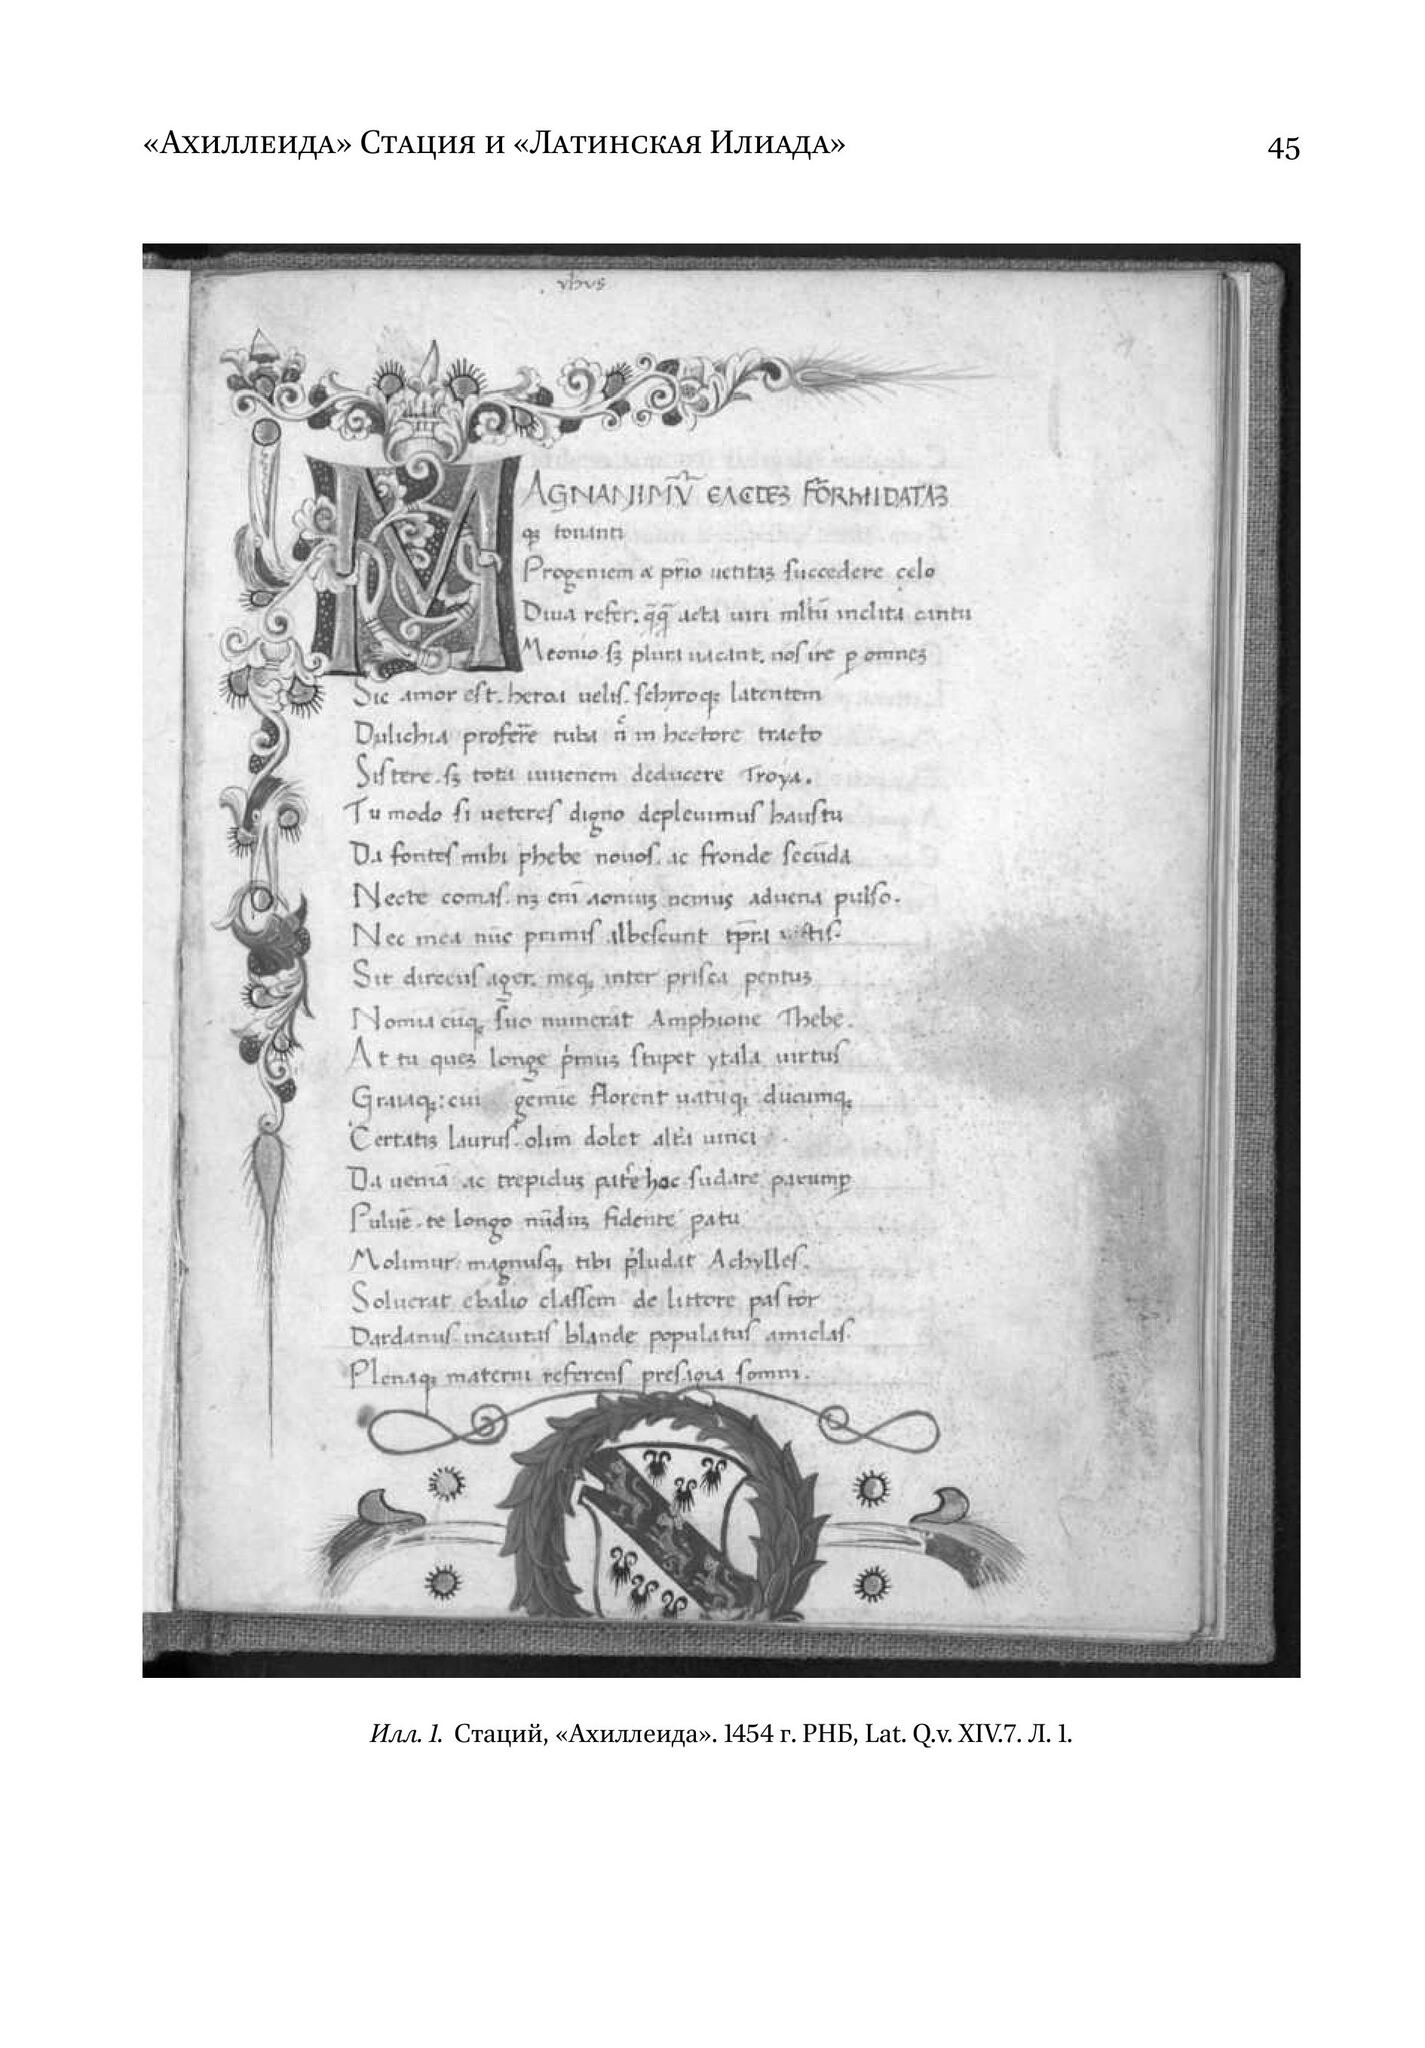 «Ахиллеида» Стация и «Латинская Илиада» 45
vbvs
MAGNANIMV̄ EACDEʒ FŌRMIDATAʒ
qʒ tonanti
Progeniem & pr̄io uetitaʒ succedere celo
Diua refer. q̄q̄ acta uiri mltū inclita cantu
Meonio sʒ plura uacant. nos ire ꝑ omneʒ
Sic amor est. heroa uelis. schyroqʒ latentem
Dulichia proferr̄e tuba n̄ in hectore tracto
Sistere. sʒ tota iuuenem deducere Troya.
Tu modo si ueteres digno depleuimus haustu
Da fontes mihi phebe nouos. ac fronde secūda
Necte comas. nʒ eni᷑ aoniuʒ nemus aduena pulso.
Nec mea nūc primis albescunt tp̄ra uittis.
Sit dirceus ager. meqʒ inter prisca pentuʒ
Nomia cūqʒ suo numerāt Amphione Thebe.
At tu queʒ longe p̄muʒ stupet ytala uirtus
Graiaqʒ: cui gemīe florent uatūqʒ ducumqʒ
Certatiʒ laurus. olim dolet altera uinci.
Da ueniā ac trepiduʒ patere hoc sudare parumꝑ
Puluē. te longo nūdiʒ fidente patu
Molimur: magnusqʒ tibi p̄ludat Achylles.
Soluerat ebalio classem de littore pastor
Dardanus. incautas blande populatus amiclas.
Plenaqʒ materni referens presagia somni.
Илл. 1. Стаций, «Ахиллеида». 1454 г. РНБ, Lat. Q.v. XIV.7. Л. 1.